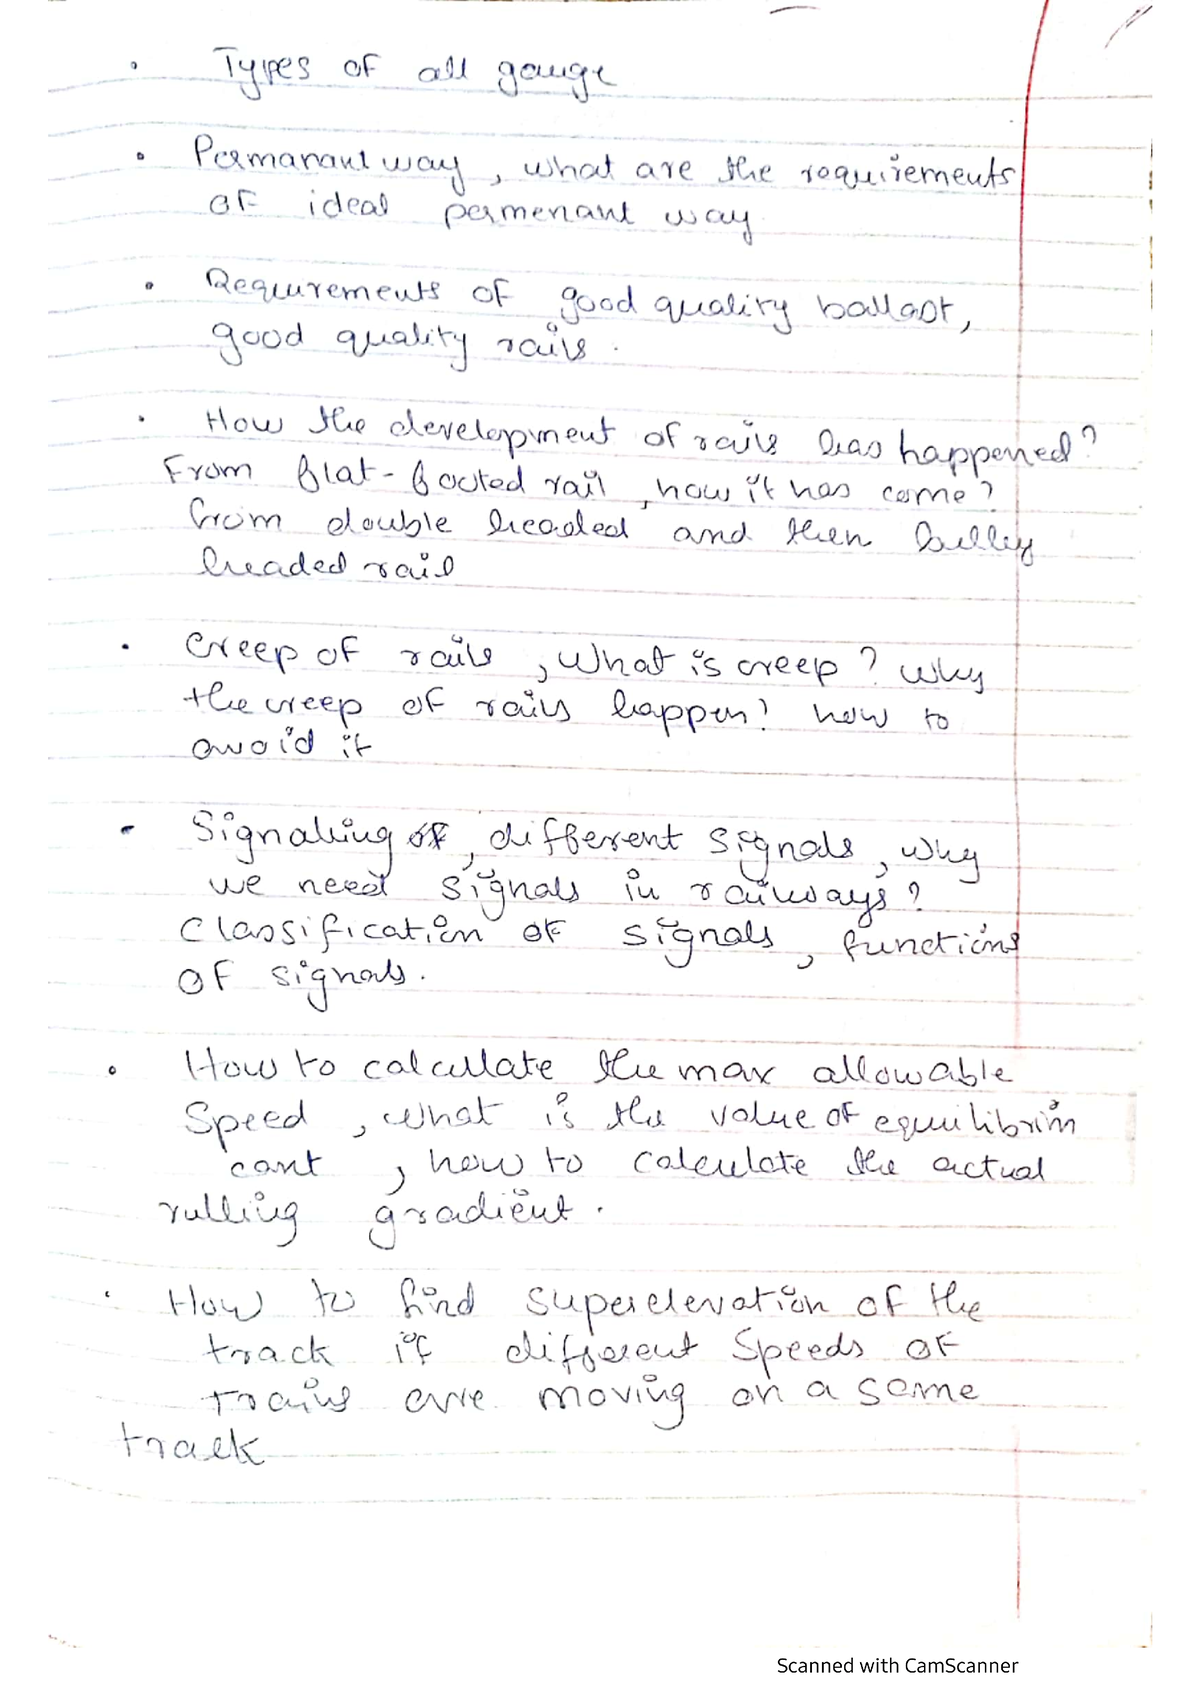 • Types of all gauge
• Permanant way, what are the requirements
of ideal permenant way
• Requirements of good quality ballast,
good quality rails.
• How the development of rails has happened?
From flat-footed rail, how it has come?
from double headed and then bulley
headed rail
• Creep of rails, What is creep? why
the creep of rails happen? how to
avoid it
• Signaling of, different signals, why
we need signals in railways?
Classification of signals, functions
of signals.
• How to calculate the max allowable
speed, what is the value of equilibrim
cant, how to calculate the actual
rulling gradient.
• How to find superelevation of the
track if different speeds of
trains are moving on a same
track
Scanned with CamScanner